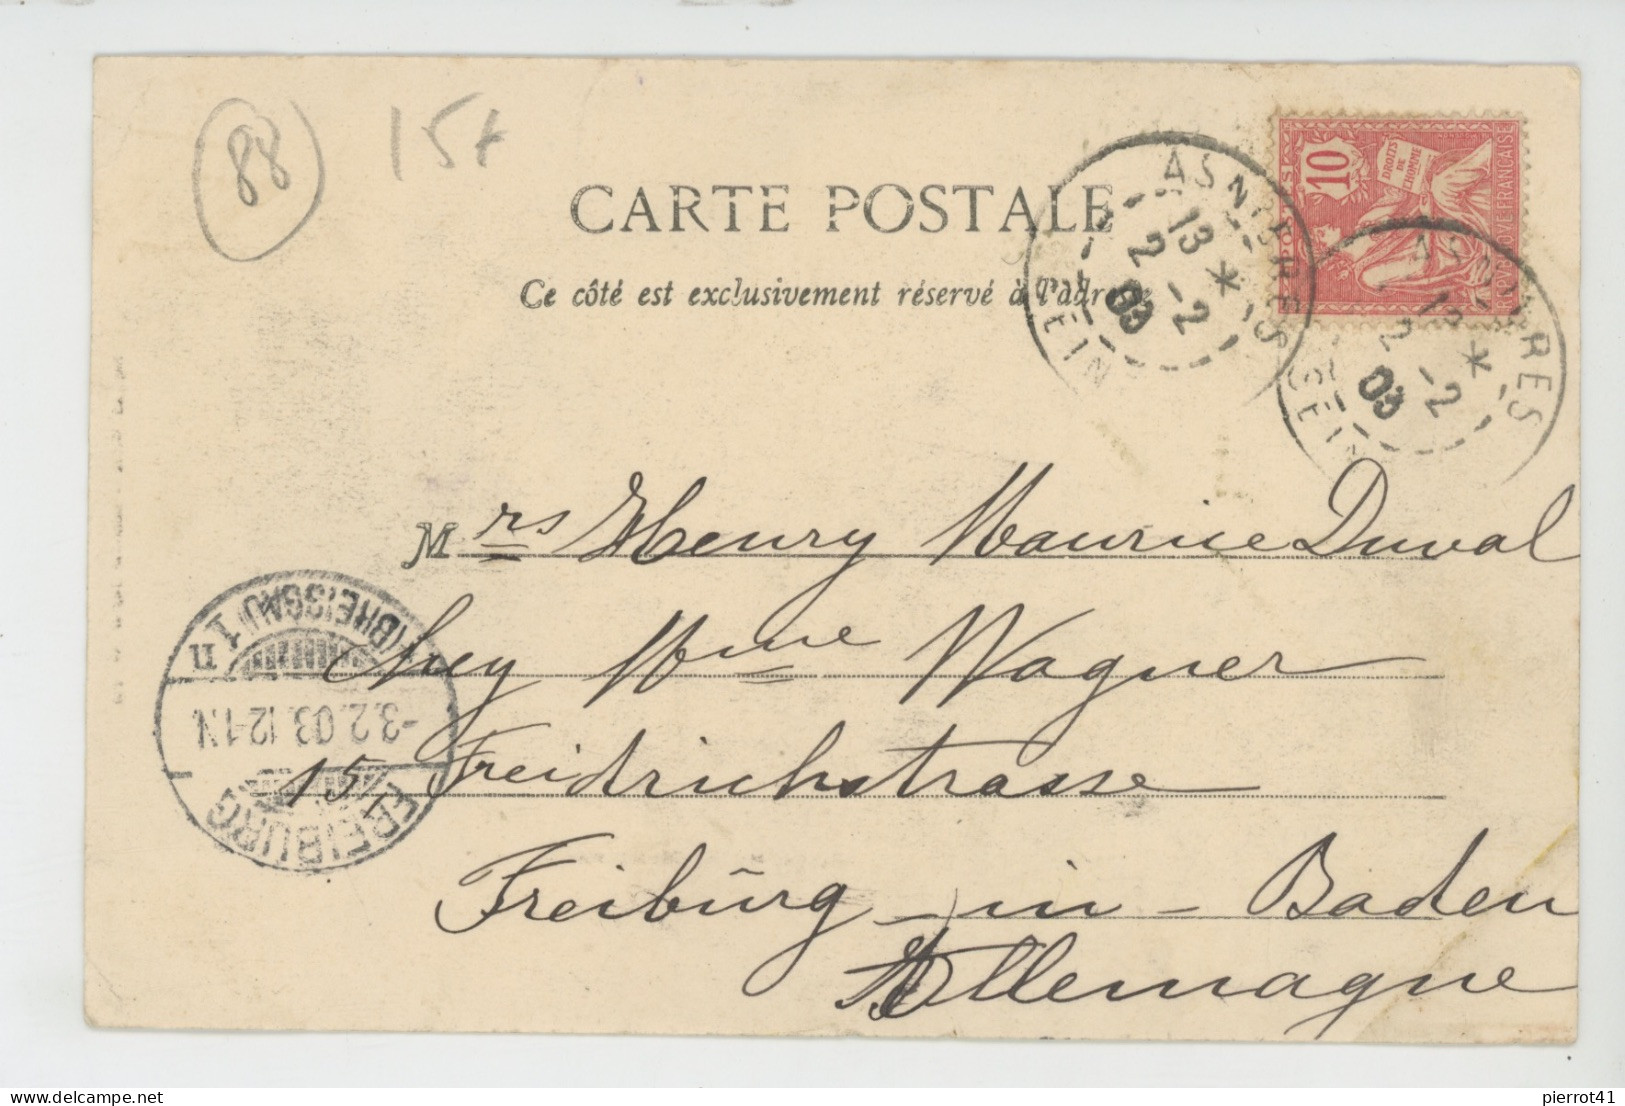 88
15+
CARTE POSTALE
Ce côté est exclusivement réservé à l'adresse
ASNIERES
13 * 2 -2 03
SEINE
10
DROITS
DE
L'HOMME
POSTES
REPUBLIQUE FRANÇAISE
ASNIERES
13 * 2 -2 03
SEINE
Mrs Henry Maurice Duval
chez Mme Wagner
15, Freidrichstrasse
Freibūrg-in-Baden
Allemagne
FREIBURG
-3.2.03.12-1.N.
(BREISGAU) 1
pierrot41